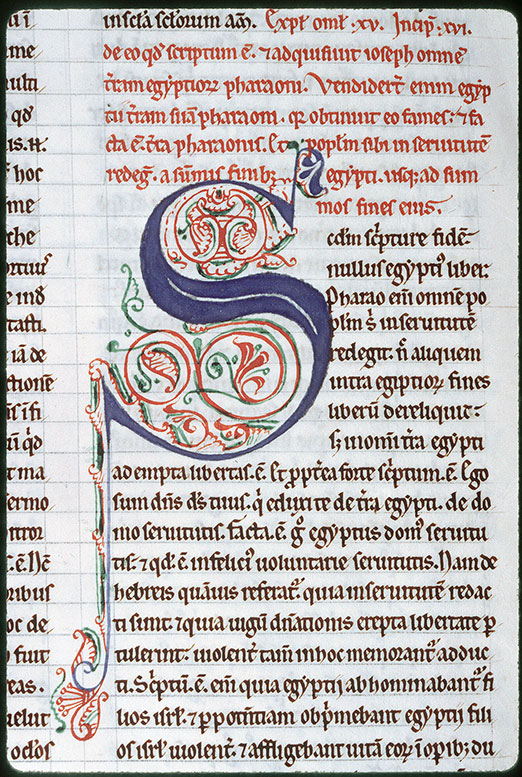 ī
me
ulti
qđ
us.
hoc
me
che
ortuus
e inđ
tasti.
iā de
ctione
us ī fi
ū qđ
t ma
fermo
ntror
.ē. hēc
oribus
oc de
fiuit
eas.
uelut
oclos
in scła scłorum am̄. Expł omł. xv. Incip̄. xvi.
de eo qđ scriptum ē. ⁊ adquisiuit ioseph omnē
t̄ram egyptiorꝝ pharaoni. Vendidert̄ enim egyp
tii t̄ram suā pharaoni. qꝛ obtinuit eos fames: ⁊ fa
cta ē t̄ra pharaonis. Et popłm sibi in seruitutē
redeḡ. a summis finibꝫ egypti. usqꝫ ad sum
mos fines eius.
Scđm sc̄pture fidē
nullus egypti' liber.
Pharao eni omnē po
płm s̄ in seruitutē
redegit. n̄ aliquem
intra egiptiorꝝ fines
liberū dereliquit:
s; in omni t̄ra egypti
adempta libertas .ē. Et ꝓpt̄ea forte sc̄ptum .ē. Ego
sum dn̄s d̄s tuus. qi eduxi te de t̄ra egypti. de do
mo seruitutis. facta .ē. g° egyptus dom' seruitu
tis. ⁊ qđ .ē. infelici' uoluntarie seruitutis. Nam de
hebreis quāuis referat̄. quia in seruitutē redac
ti sunt. ⁊ quia iugū dn̄ationis erepta libertate ꝑ
tulerint: uiolent̄ tam̄ in hoc memorant̄ adduc
ti. Sc̄ptū .ē. eni quia egyptii abhominabant̄ fi
lios isrł. ⁊ ꝑ potentiam opp̄mebant egyptii fili
os isrł uiolent̄. ⁊ affligebant uitā eorꝝ ī opibꝫ du